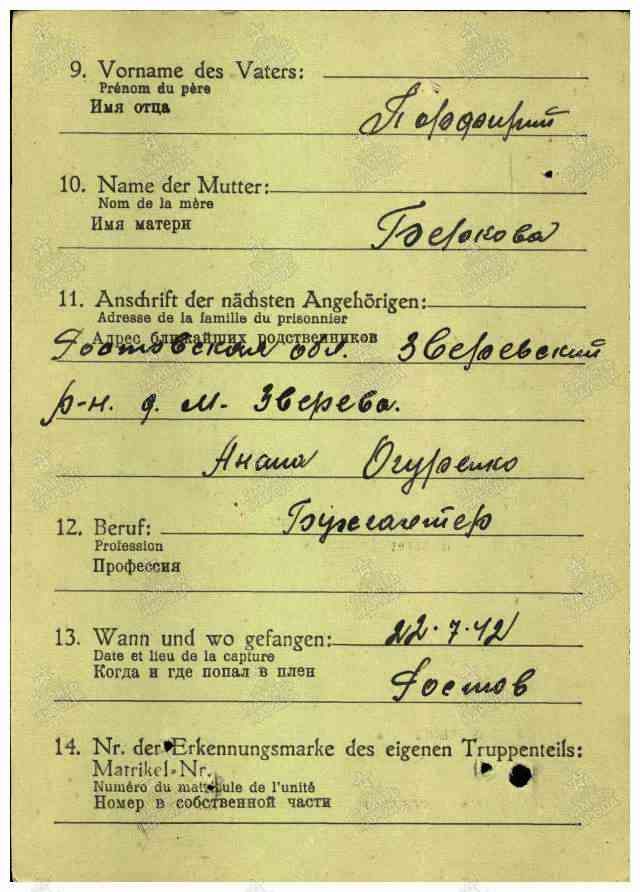 9. Vorname des Vaters:
Prénom du père
Имя отца
Порфирий
10. Name der Mutter:
Nom de la mère
Имя матери
Беркова
11. Anschrift der nächsten Angehörigen:
Adresse de la famille du prisonnier
Адрес ближайших родственников
Ростовская обл. Зверевский
р-н. д. м. Зверева.
Огуренко
12. Beruf:
Бухгалтер
Profession
Профессия
13. Wann und wo gefangen:
22.7.42
Date et lieu de la capture
Когда и где попал в плен
Ростов
14. Nr. der Erkennungsmarke des eigenen Truppenteils:
Matrikel-Nr.
Numéro du matricule de l'unité
Номер в собственной части